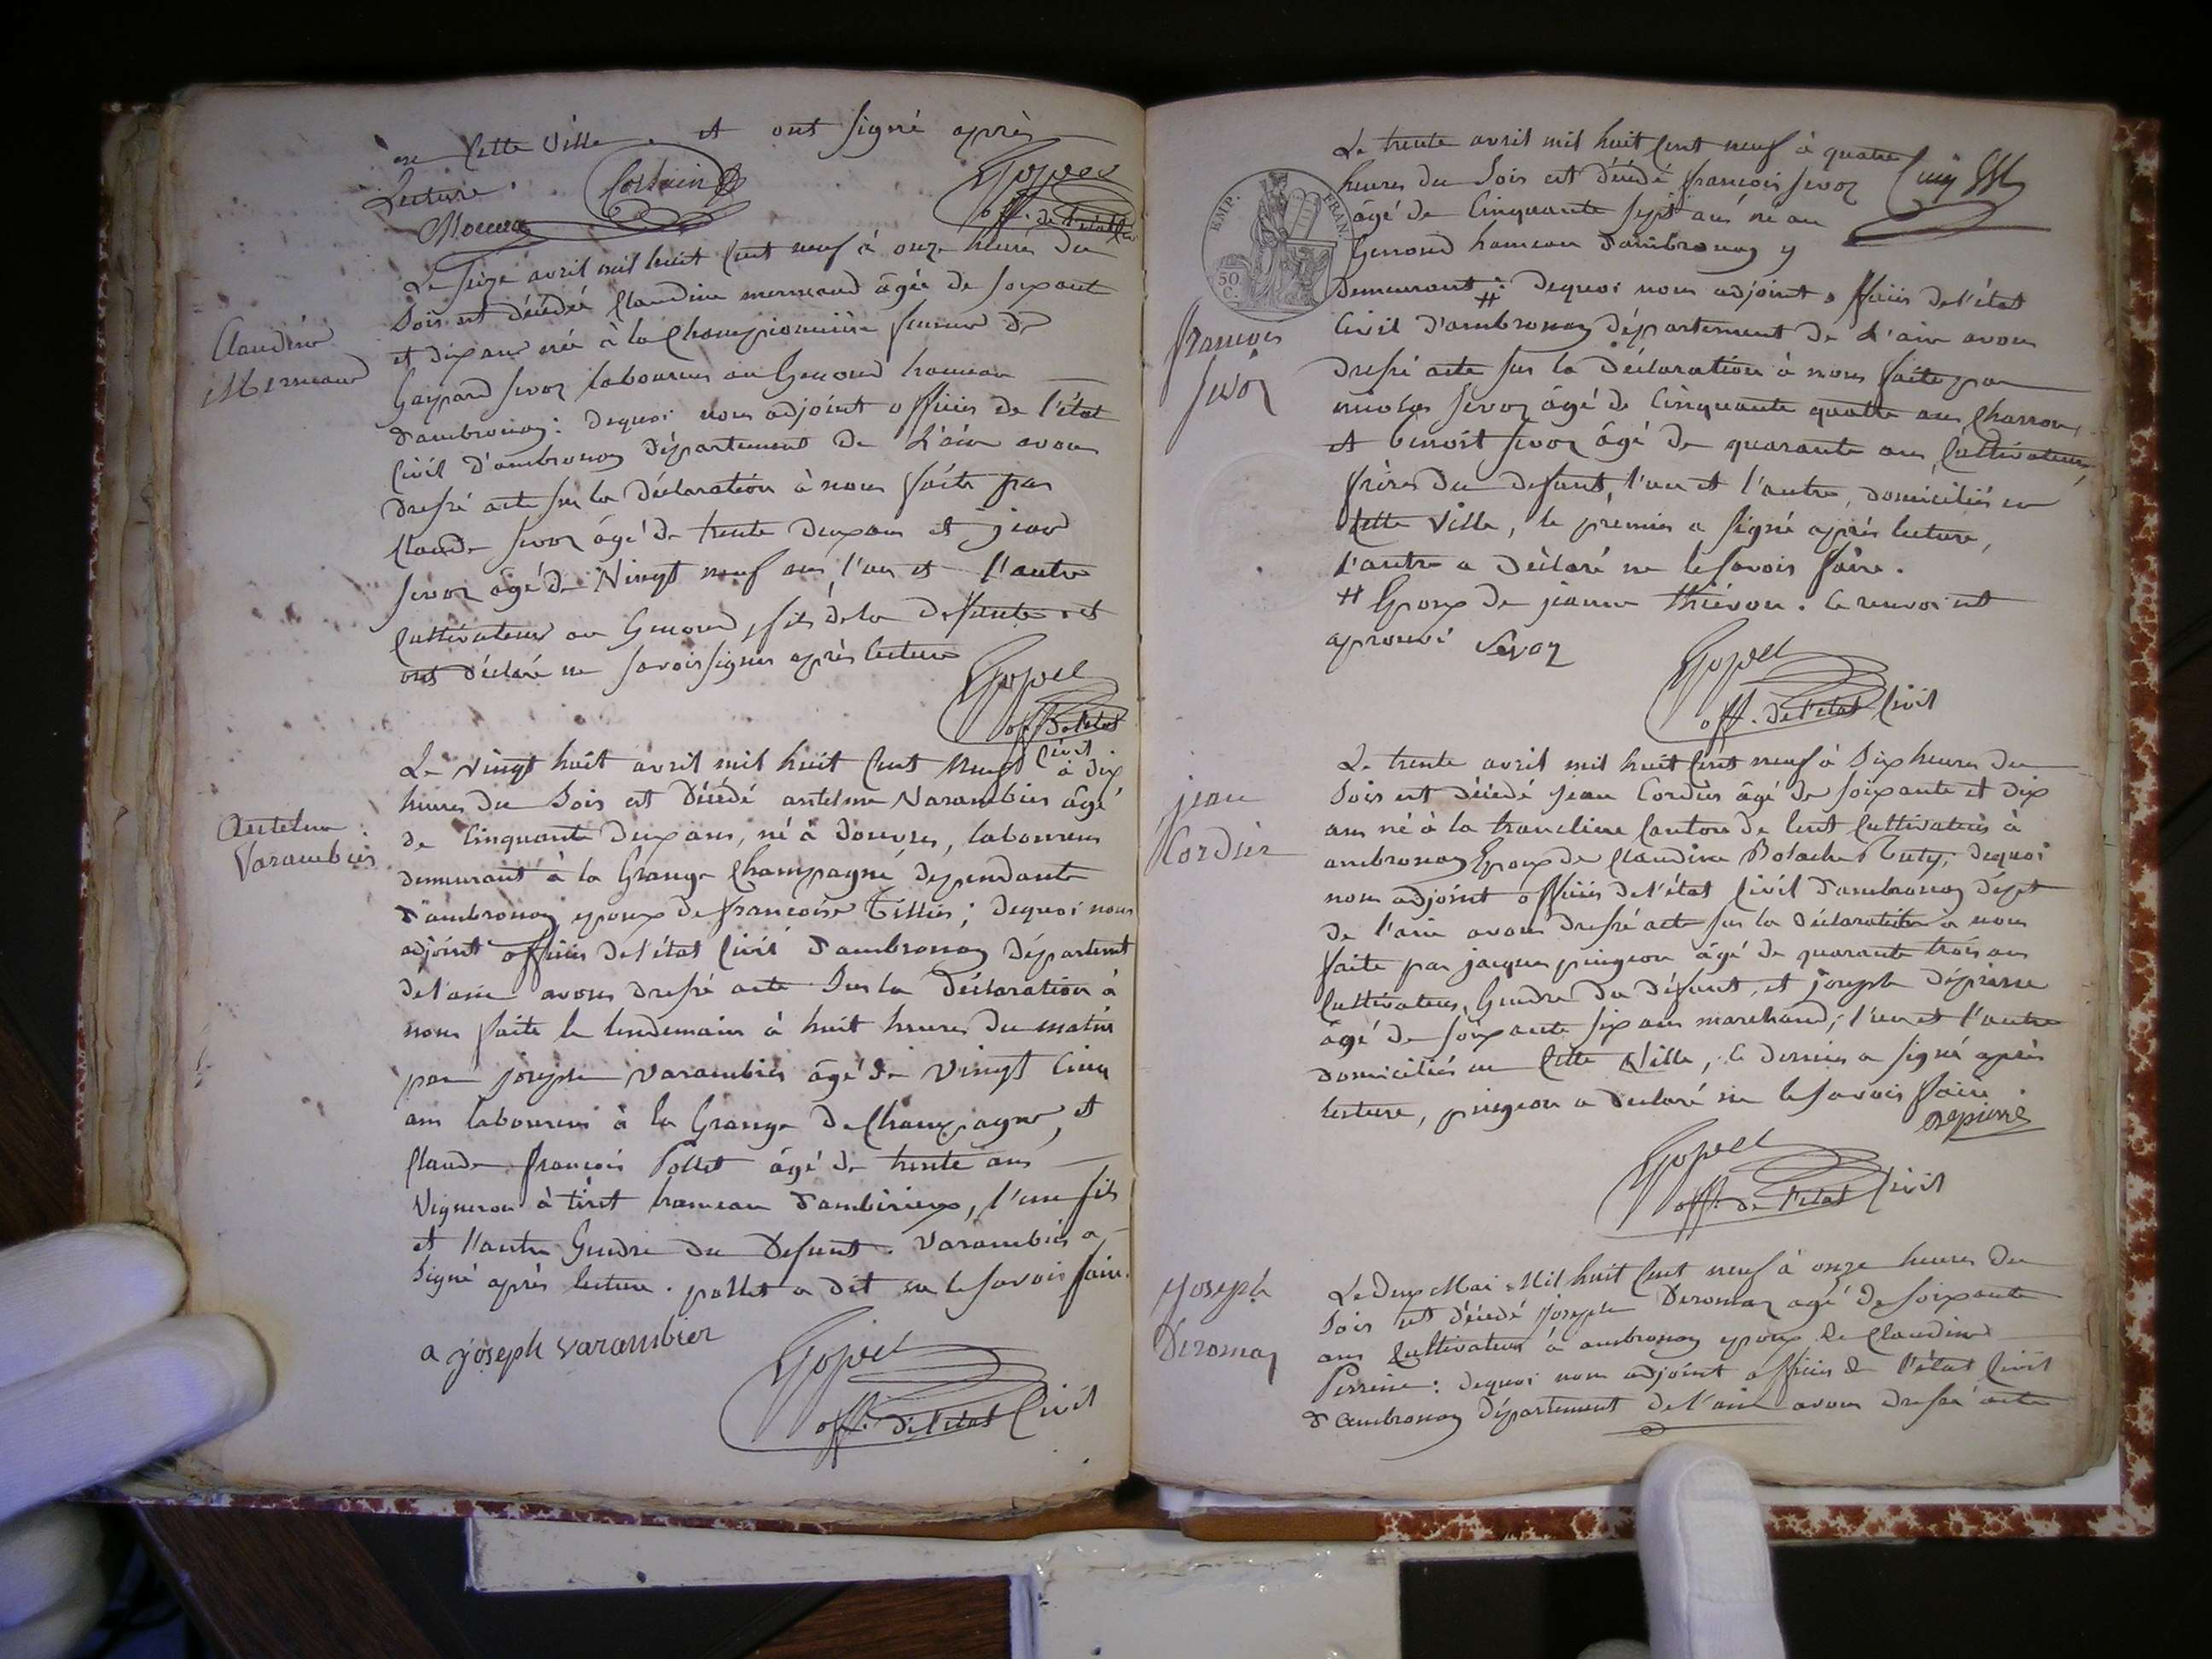 en cette ville et ont signé après
Lecture.
off. de l'état
Claudine
Mermand
Le seize avril mil huit cent neuf à onze heures du
soir est décédée Claudine mermand âgée de soixante
et dix ans née à la Championnière femme de
Gaspard sevoz laboureur au Genoud hameau
d'ambronay: dequoi nous adjoint officier de l'état
Civil d'ambronay département de L'ain avons
dressé acte sur la déclaration à nous faite par
Claude sevoz âgé de trente deux ans et jean
sevoz âgé de Vingt neuf ans, l'un et l'autre
Cultivateurs au Genoud, fils de la defunte et
ont déclaré ne savoir signer après lecture
off. de l'état
Civil.
Antelme
Varambier
Le vingt huit avril mil huit cent neuf à dix
heures du soir est décédé antelme Varambier âgé
de Cinquante deux ans, né à douvres, laboureur
demeurant à la Grange Champagne dependante
d'ambronay epoux de francoise Tillier; dequoi nous
adjoint officier de l'état Civil d'ambronay départemt
de l'ain avons dressé acte Sur la Déclaration à
nous faite le lendemain à huit heures du matin
par joseph varambier âgé de vingt Cinq
ans laboureur à la Grange de Champagne, et
Claude francois Pollet âgé de trente ans
Vigneron à tiret hameau d'ambérieux, l'un fils
et l'autre Gendre du Defunt. Varambier a
Signé après lecture. pollet a dit ne le savoir faire.
a joseph varambier
off. de l'état Civil
EMP. FRAN.
50
C.
francois
sevoz
Le trente avril mil huit cent neuf à quatre
heures du Soir est décédé francois sevoz
âgé de Cinquante sept ans né au
Genoud hameau d'ambronay y
demeurant # : dequoi nous adjoint officier de l'état
Civil d'ambronay département de L'ain avons
dressé acte sur la Déclaration à nous faite par
nicolas sevoz âgé de Cinquante quatre ans Charron,
et benoit sevoz âgé de quarante ans Cultivateur,
frères du defunt, l'un et l'autre, domiciliés en
Cette Ville, le premier a signé après lecture,
l'autre a Déclaré ne le savoir faire.
# Epoux de jeanne thiévon. le renvoi est
aprouvé Sevoz
off. de l'état Civil
jean
Cordier
Le trente avril mil huit cent neuf à Six heures du
Soir est décédé jean Cordier âgé de soixante et dix
ans né à la trancliere Canton de Cent Cultivateur à
ambronay Epoux de Claudine dequoi
nous adjoint officier de l'état Civil d'ambronay dépt
de l'ain avons dressé acte sur la déclaration à nous
faite par jacques pingeon âgé de quarante trois ans
Cultivateur, Gendre du défunt, et joseph dépierre
âgé de soixante six ans marchand; l'un et l'autre
domiciliés en Cette Ville, le dernier a signé après
lecture, pingeon a declaré ne le savoir faire
depierre
off. de l'état Civil
Joseph
Deromaz
Le Deux Mai Mil huit Cent neuf à onze heures du
Soir est décédé Joseph Deromaz agé de soixante
ans Cultivateur à ambronay epoux de Claudine
Perrine: dequoi nous adjoint officier de l'état Civil
d'ambronay Département de l'ain avons dressé acte